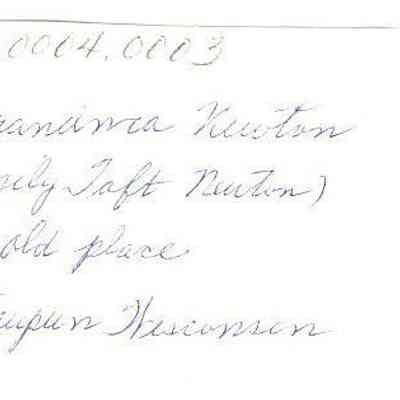 0004.0003
Newton
Taft Newton)
old place
Wisconsin